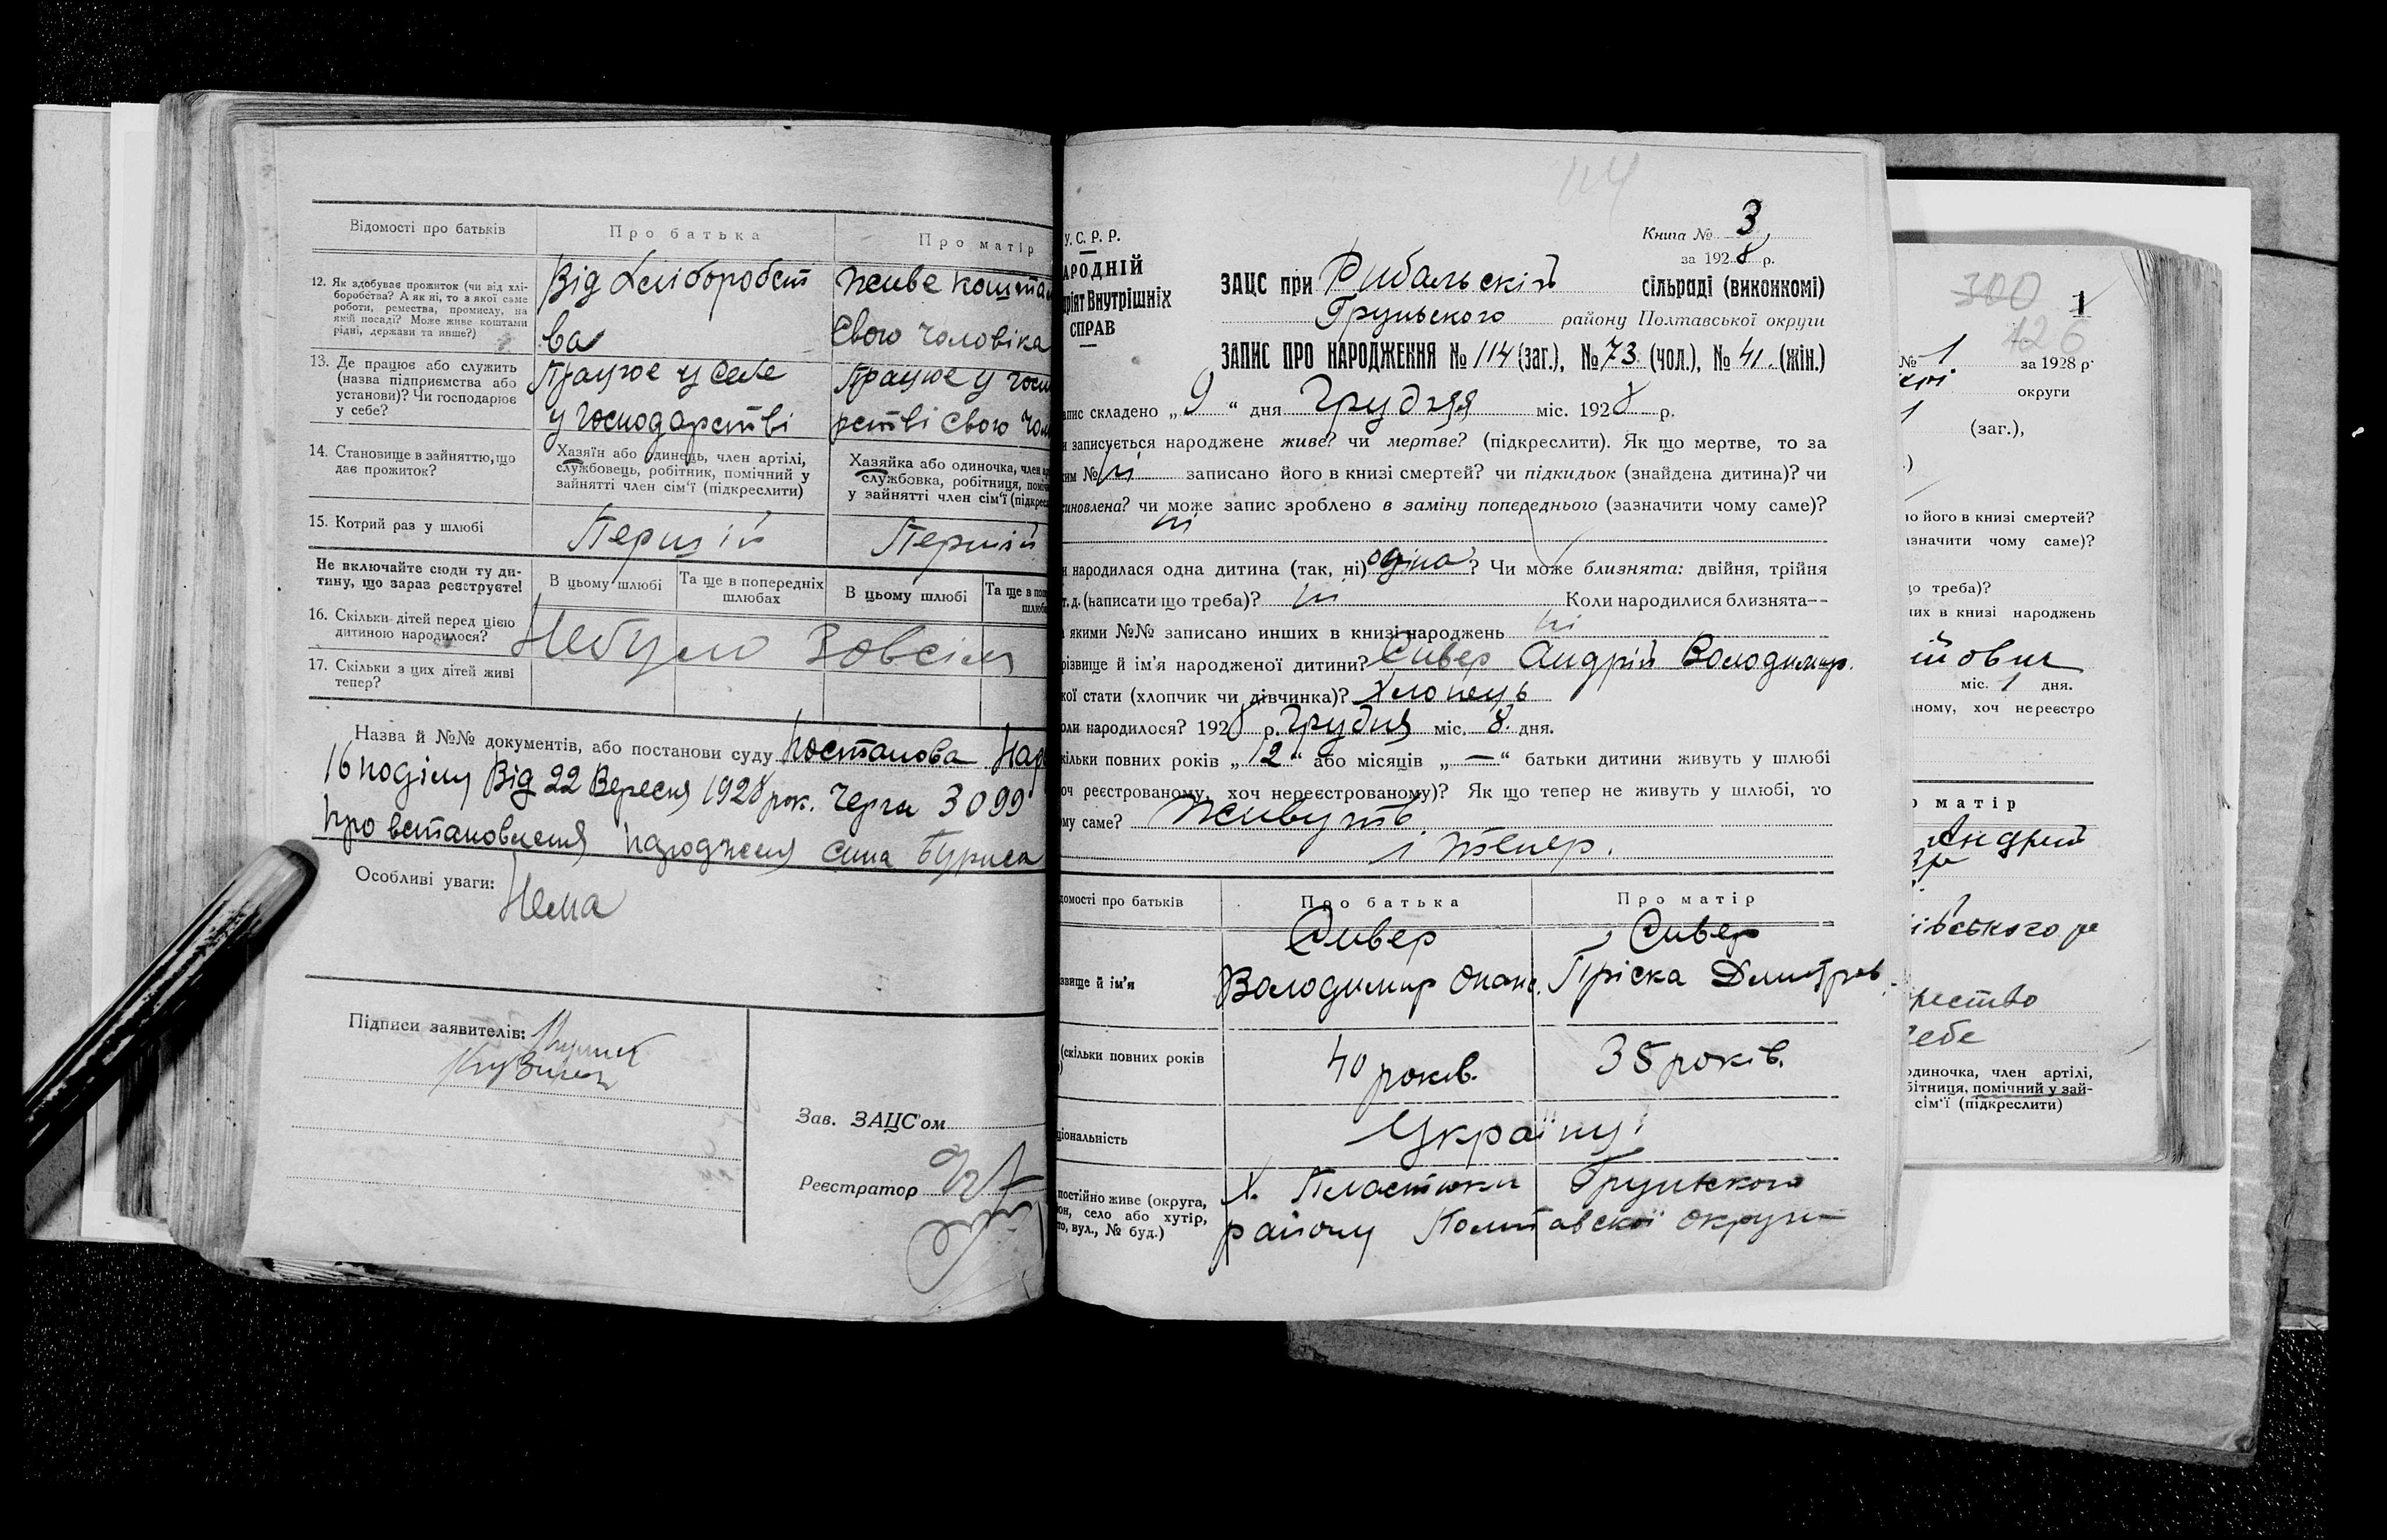 Відомості про батьків
Про батька
Про матір
12. Як здобуває прожиток (чи від хлі-
боробства? А як ні, то з якої саме
роботи, ремества, промислу, на
якій посаді? Може живе коштами
рідні, держави та инше?)
Від Хліборобст
ва
Живе коштам
Свого чоловіка
13. Де працює або служить
(назва підприємства або
установи)? Чи господарює
у себе?
Працює у себе
у господарстві
Працює у госп
рстві свого чол
14. Становище в зайняттю, що
дає прожиток?
Хазяїн або одинець, член артілі,
службовець, робітник, помічний у
зайнятті член сім'ї (підкреслити)
Хазяйка або одиночка, член ар
службовка, робітниця, поміч
у зайнятті член сім'ї (підкрес
15. Котрий раз у шлюбі
Першій
Першій
Не включайте сюди ту ди-
тину, що зараз реєструєте!
В цьому шлюбі
Та ще в попередніх
шлюбах
В цьому шлюбі
Та ще в поп
шлюб
16. Скільки дітей перед цією
дитиною народилося?
Небуло Зовсім
17. Скільки з цих дітей живі
тепер?
Назва й №№ документів, або постанови суду Постанова Нар
16 поділу Від 22 Вересня 1928 рок. Черги 3099
про встановленя народженя сина Бориса
Особливі уваги: Нема
Підписи заявителів:
Зав. ЗАЦС'ом
Реєстратор
114
У.С.Р.Р.
АРОДНІЙ
ріят Внутрішніх
СПРАВ
Книга № 3
за 1928 р.
ЗАЦС при Рибальскій сільраді (виконкомі)
Грунського району Полтавської округи
ЗАПИС ПРО НАРОДЖЕННЯ № 114 (заг.), № 73 (чол.), № 41. (жін.)
апис складено „9“ дня Грудня міс. 1928 р.
и записується народжене живе? чи мертве? (підкреслити). Як що мертве, то за
ким № ні записано його в книзі смертей? чи підкидьок (знайдена дитина)? чи
синовлена? чи може запис зроблено в заміну попереднього (зазначити чому саме)?
ні
и народилася одна дитина (так, ні) одна? Чи може близнята: двійня, трійня
т. д. (написати що треба)? ні Коли народилися близнята—
а якими №№ записано инших в книзі народжень ні
різвище й ім'я народженої дитини? Сивер Андрій Володимир.
кої стати (хлопчик чи дівчинка)? Хлопець
оли народилося? 1928 р. Грудня міс. 8 дня.
кільки повних років „12“ або місяців „—“ батьки дитини живуть у шлюбі
оч реєстрованому, хоч нереєстрованому)? Як що тепер не живуть у шлюбі, то
му саме? Живуть
і тепер.
домості про батьків
Про батька
Про матір
звище й ім'я
Сивер
Володимир Опан.
Сивер
Пріска Дмитров.
(скільки повних років
)
40 років.
35 років.
ціональність
Україну
постійно живе (округа,
он, село або хутір,
то, вул., № буд.)
Х. Пластюки Грунського
району Полтавскої округи
300
1
126
№ 1 за 1928 р.
округи
1 (заг.),
.)
о його в книзі смертей?
азначити чому саме)?
що треба)?
них в книзі народжень
йович
міс. 1 дня.
ному, хоч нереєстро
о матір
Андрий
івського ра
рество
себе
одиночка, член артілі,
бітниця, помічний у зай-
сім'ї (підкреслити)